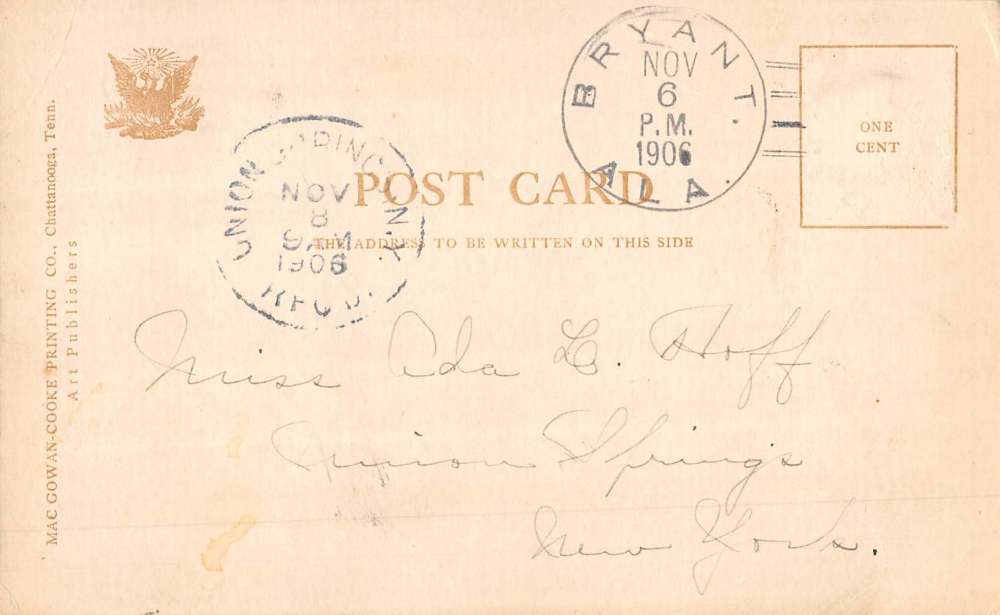 MAC GOWAN-COOKE PRINTING CO., Chattanooga, Tenn.
Art Publishers
BRYANT.
NOV
6
P.M.
1906
ALA.
ONE
CENT
UNION SPRINGS N.Y.
NOV
8
9 AM
1906
REC'D.
POST CARD
THE ADDRESS TO BE WRITTEN ON THIS SIDE
Miss Ada L. Hoff
Union Springs
New York.